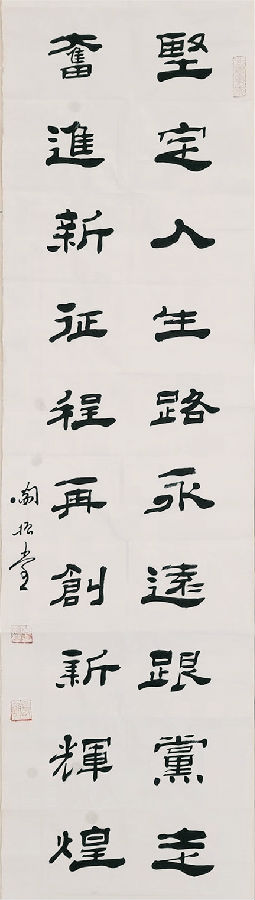 堅定人生路永遠跟黨走
奮進新征程再創新輝煌